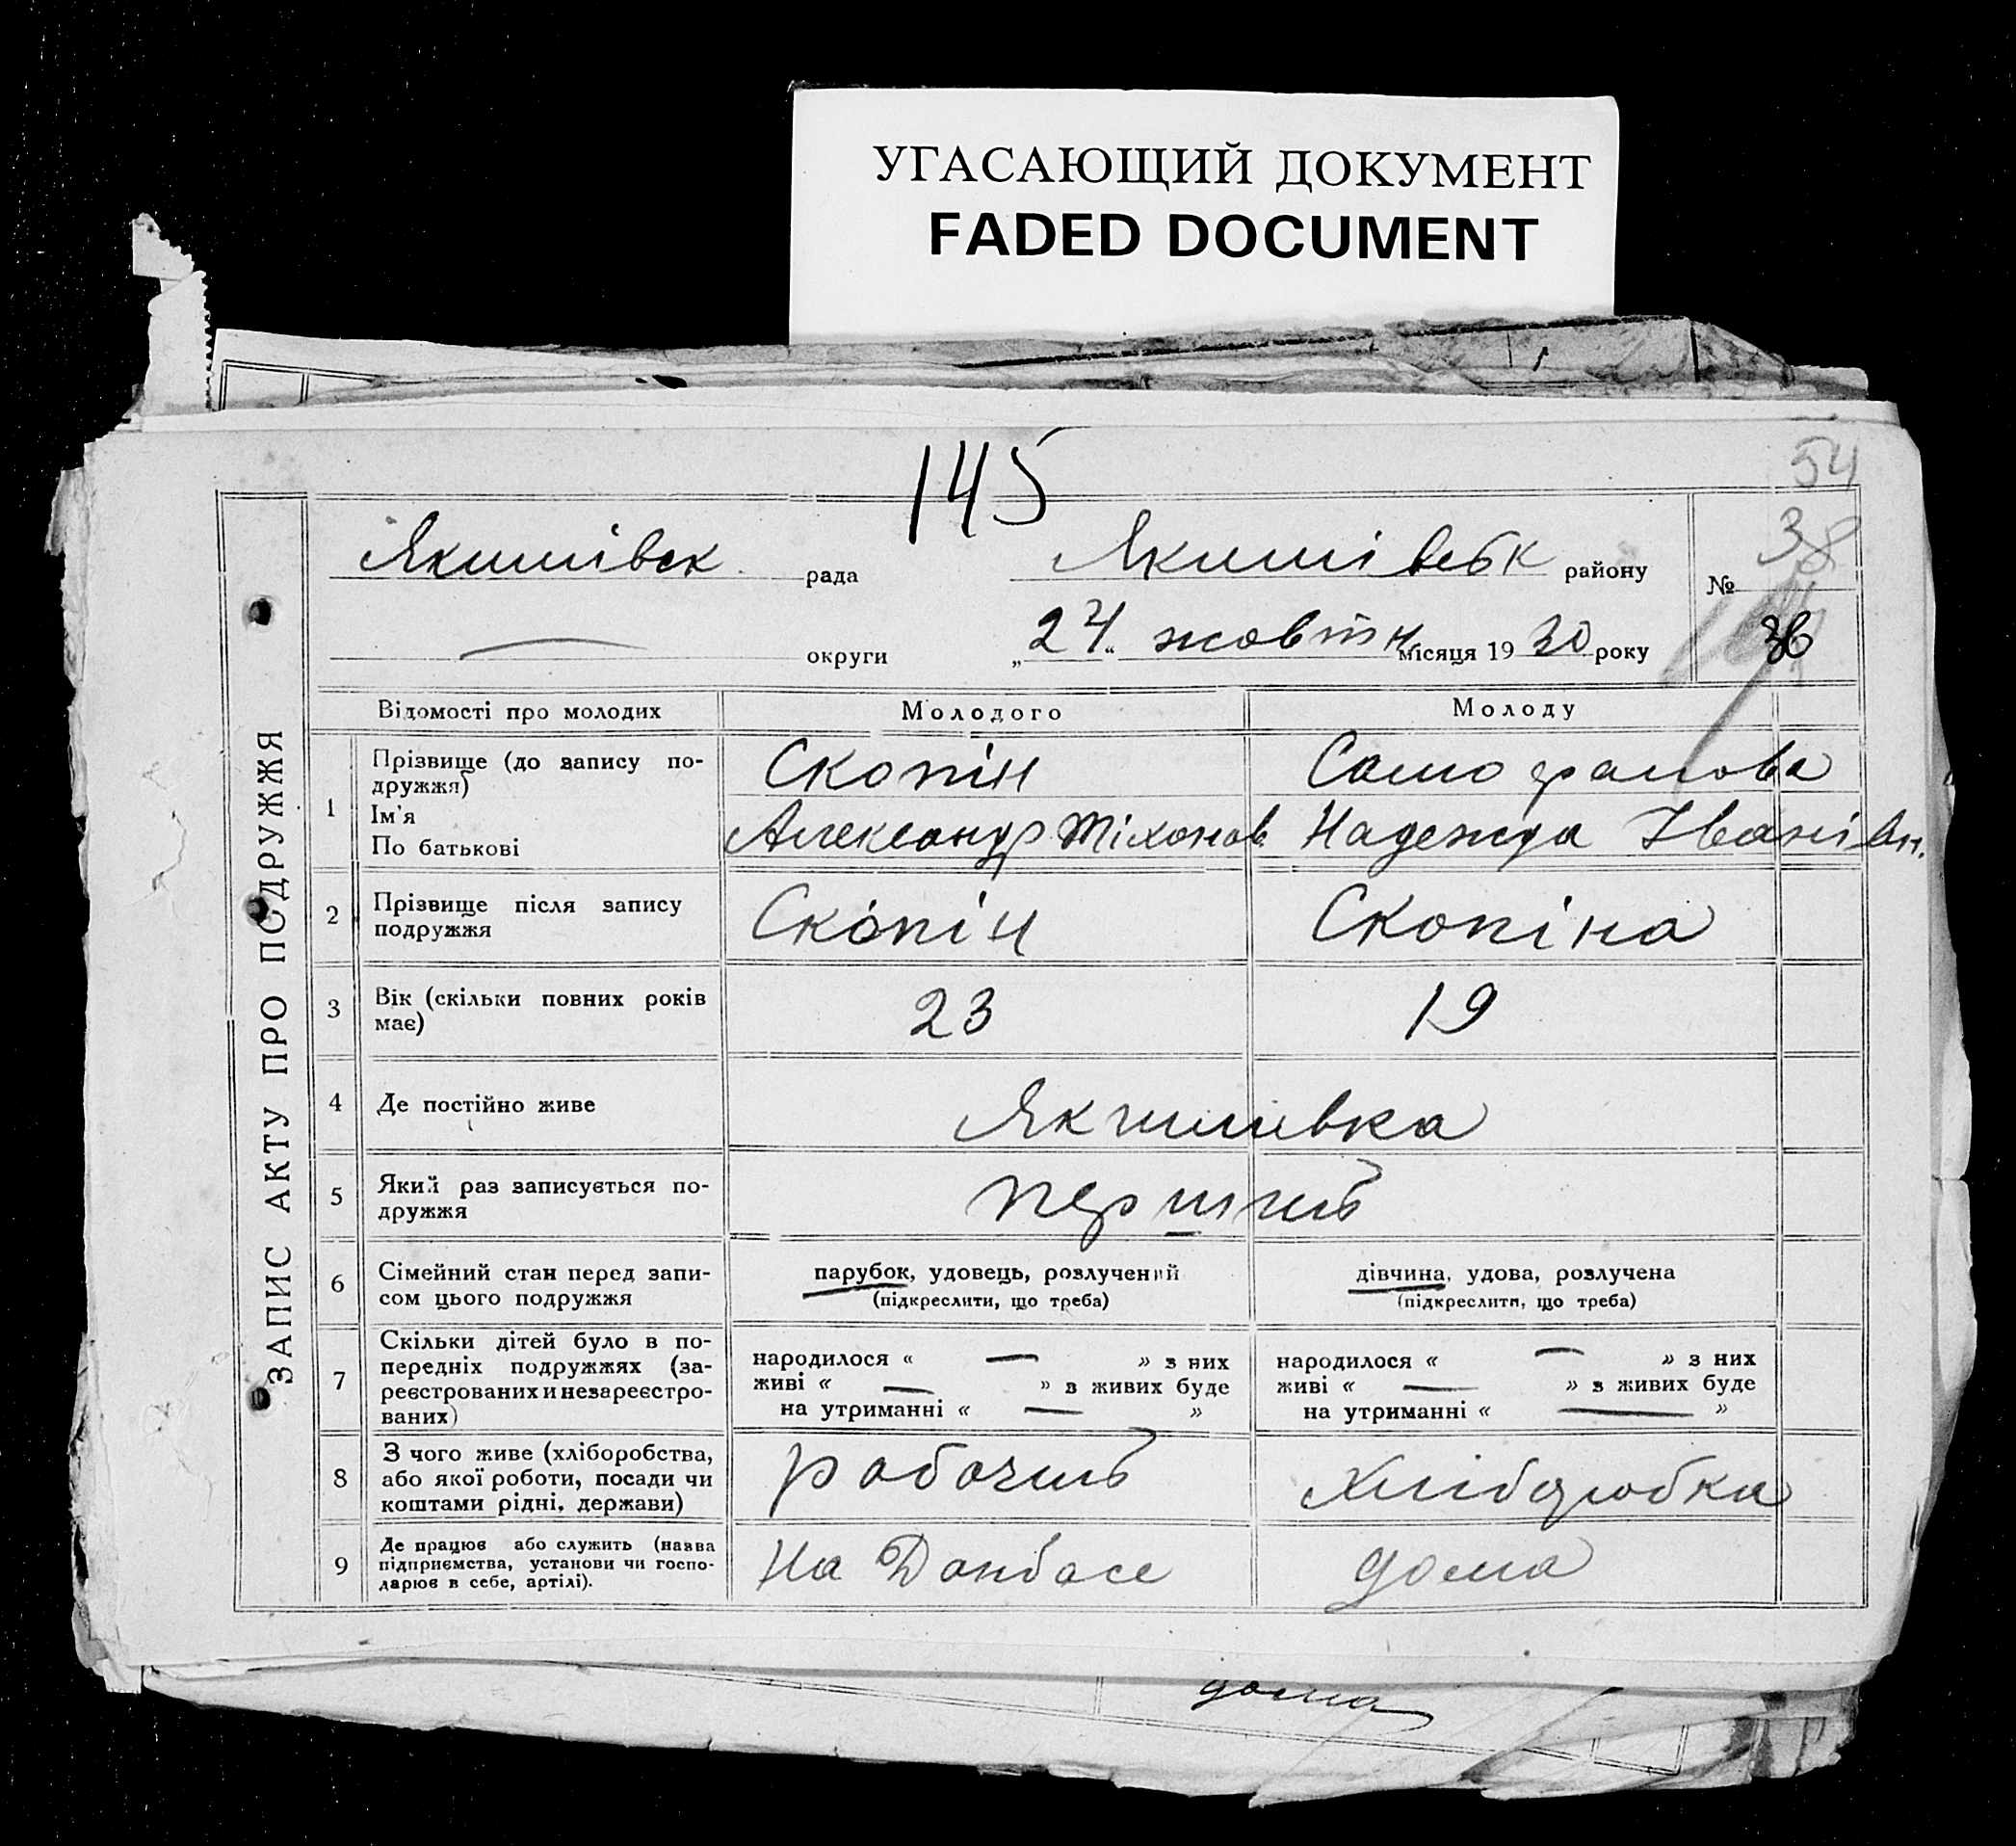 УГАСАЮЩИЙ ДОКУМЕНТ
FADED DOCUMENT
145
54
Якимівськ рада Якимівськ району № 38
округи „24“ жовтня місяця 1930 року 38
ЗАПИС АКТУ ПРО ПОДРУЖЖЯ
Відомості про молодих Молодого Молоду
1 Прізвище (до запису по-
дружжя) Скопін
Ім'я
По батькові Александр Тіхонов. Надежда Іванівн.
2 Прізвище після запису
подружжя Скопін Скопіна
3 Вік (скільки повних років
має) 23 19
4 Де постійно живе Якимивка
5 Який раз записується по-
дружжя перший
6 Сімейний стан перед запи-
сом цього подружжя
парубок, удовець, розлучений
(підкреслити, що треба)
дівчина, удова, розлучена
(підкреслити, що треба)
7 Скільки дітей було в по-
передніх подружжях (за-
реєстрованих и незареєстро-
ваних)
народилося « — » з них
живі « — » з живих буде
на утриманні « — »
народилося « — » з них
живі « — » з живих буде
на утриманні « — »
8 З чого живе (хліборобства,
або якої роботи, посади чи
коштами рідні, держави) рабочий Хлібаробка
9 Де працює або служить (назва
підприємства, установи чи госпо-
дарює в себе, артілі). На Донбасе дома
дома